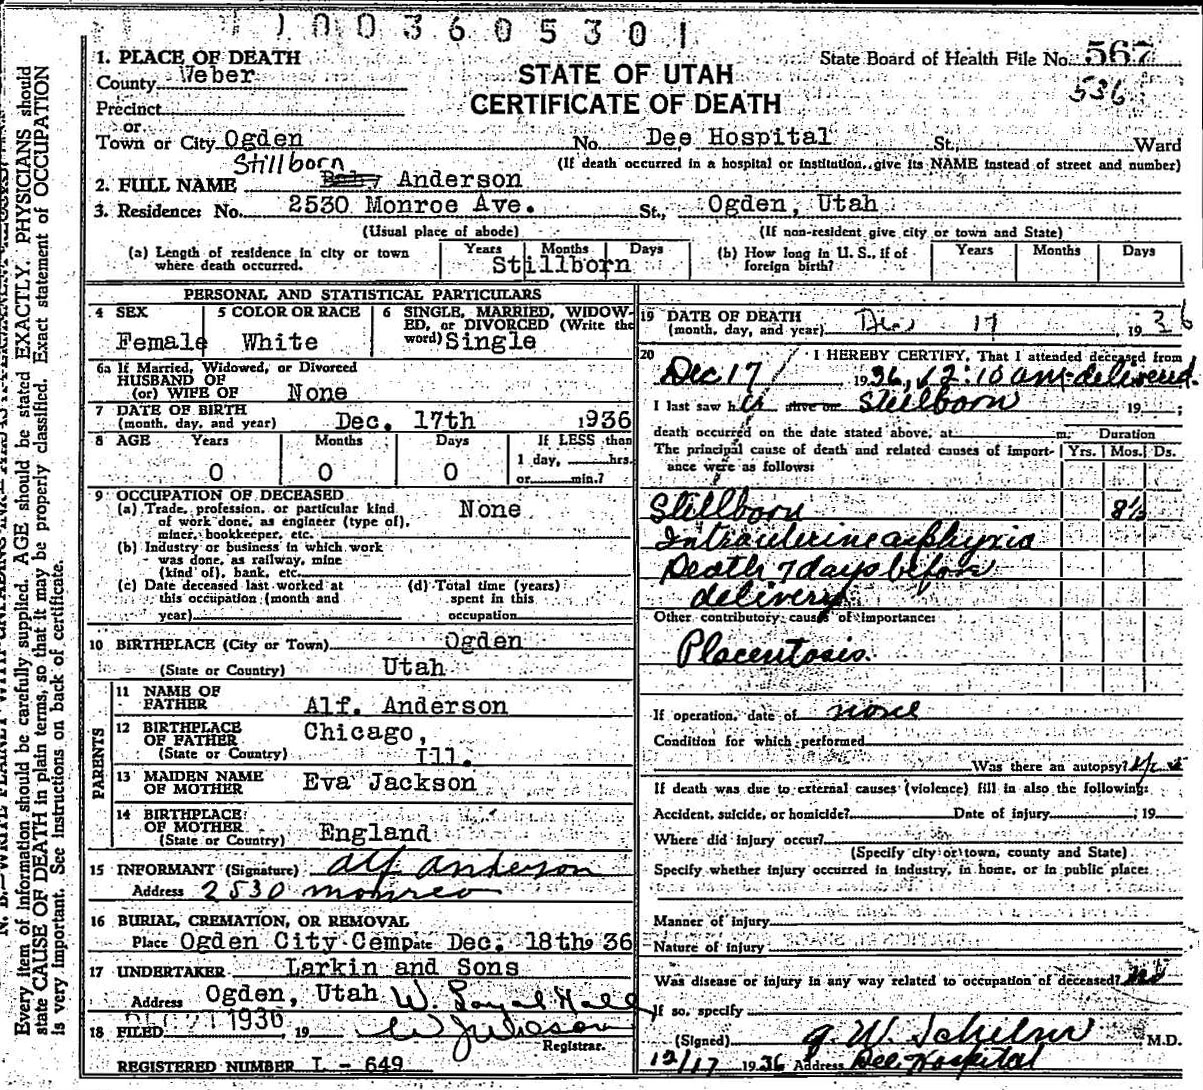 1003605301
1. PLACE OF DEATH
State Board of Health File No. 567
County Weber
STATE OF UTAH
536
Precinct
CERTIFICATE OF DEATH
or
Town or City Ogden No. Dee Hospital St., Ward
(If death occurred in a hospital or institution, give its NAME instead of street and number)
Stillborn
2. FULL NAME Baby Anderson
3. Residence: No. 2530 Monroe Ave. St., Ogden, Utah
(Usual place of abode) (If non-resident give city or town and State)
(a) Length of residence in city or town where death occurred. Years Months Days
Stillborn
(b) How long in U. S., if of foreign birth? Years Months Days
PERSONAL AND STATISTICAL PARTICULARS
4 SEX 5 COLOR OR RACE 6 SINGLE, MARRIED, WIDOW-
ED, or DIVORCED (Write the
Female White word) Single
6a If Married, Widowed, or Divorced
HUSBAND OF
(or) WIFE OF None
7 DATE OF BIRTH
(month, day, and year) Dec. 17th 1936
8 AGE Years Months Days If LESS than
1 day, hrs.
0 0 0 or min.?
9 OCCUPATION OF DECEASED
(a) Trade, profession, or particular kind None
of work done, as engineer (type of),
miner, bookkeeper, etc.
(b) Industry or business in which work
was done, as railway, mine
(kind of), bank, etc.
(c) Date deceased last worked at (d) Total time (years)
this occupation (month and spent in this
year) occupation
10 BIRTHPLACE (City or Town) Ogden
(State or Country) Utah
PARENTS
11 NAME OF
FATHER Alf. Anderson
12 BIRTHPLACE Chicago,
OF FATHER
(State or Country) Ill.
13 MAIDEN NAME
OF MOTHER Eva Jackson
14 BIRTHPLACE
OF MOTHER
(State or Country) England
15 INFORMANT (Signature) Alf Anderson
Address 2530 Monroe
16 BURIAL, CREMATION, OR REMOVAL
Place Ogden City Cem Date Dec. 18th 36
17 UNDERTAKER Larkin and Sons
Address Ogden, Utah W. Loyal Hall
18 FILED DEC 21 1936 19
Registrar.
REGISTERED NUMBER L - 649
19 DATE OF DEATH
(month, day, and year) Dec 17 1936
20 I HEREBY CERTIFY, That I attended deceased from
Dec 17 1936, 12:10 am delivered.
I last saw her alive on Stillborn 19 ;
death occurred on the date stated above, at m. Duration
The principal cause of death and related causes of import- Yrs. Mos. Ds.
ance were as follows:
Stillborn 8½
Intrauterine asphyxia
Death 7 days before
delivery
Other contributory causes of importance:
Placentosis.
If operation, date of none
Condition for which performed
Was there an autopsy? yes
If death was due to external causes (violence) fill in also the following:
Accident, suicide, or homicide? Date of injury 19
Where did injury occur?
(Specify city or town, county and State)
Specify whether injury occurred in industry, in home, or in public place:
Manner of injury
Nature of injury
Was disease or injury in any way related to occupation of deceased? no
If so, specify
(Signed) M.D.
12/17 1936 Address Dee Hospital
Every item of information should be carefully supplied. AGE should be stated EXACTLY. PHYSICIANS should
state CAUSE OF DEATH in plain terms, so that it may be properly classified. Exact statement of OCCUPATION
is very important. See instructions on back of certificate.